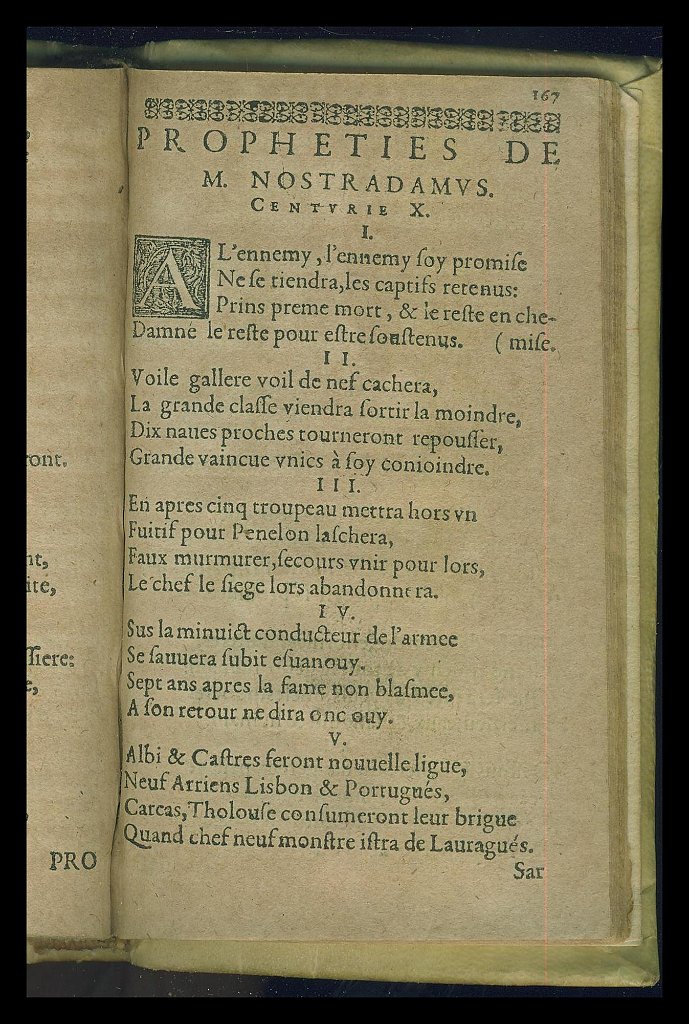 ront,
nt,
ite,
ſſiere:
e,
PRO
167
PROPHETIES DE
M. NOSTRADAMVS.
CENTVRIE X.
I.
AL'ennemy, l'ennemy ſoy promiſe
Ne ſe tiendra, les captifs retenus:
Prins preme mort, & le reſte en che-
Damné le reſte pour eſtre ſouſtenus. ( miſe.
II.
Voile gallere voil de nef cachera,
La grande claſſe viendra ſortir la moindre,
Dix naues proches tourneront repouſſer,
Grande vaincue vnics à ſoy conioindre.
III.
En apres cinq troupeau mettra hors vn
Fuitif pour Penelon laſchera,
Faux murmurer, ſecours vnir pour lors,
Le chef le ſiege lors abandonnera.
IV.
Sus la minuict conducteur de l'armee
Se ſauuera ſubit eſuanouy.
Sept ans apres la fame non blaſmee,
A ſon retour ne dira onc ouy.
V.
Albi & Caſtres feront nouuelle ligue,
Neuf Arriens Lisbon & Portugués,
Carcas, Tholouſe conſumeront leur brigue
Quand chef neuf monſtre iſtra de Lauragués.
Sar